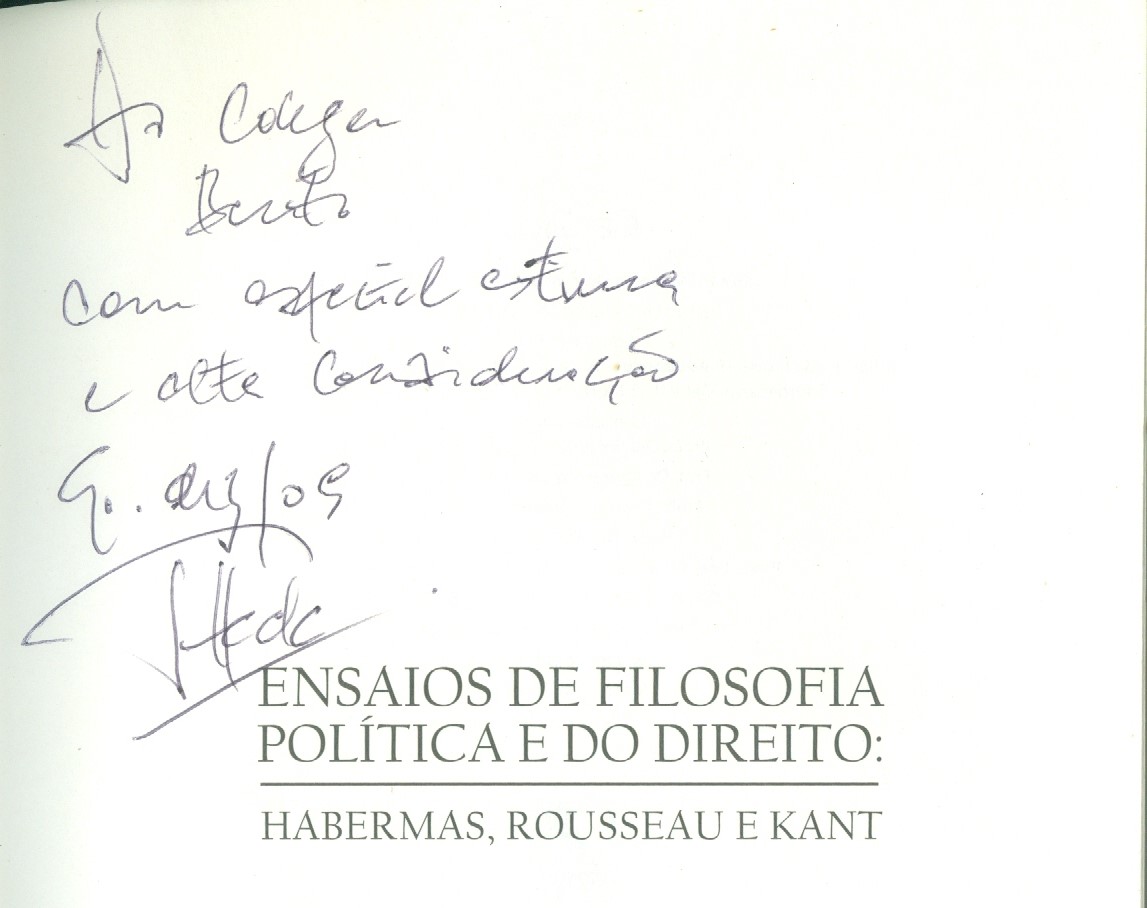 Ao Colega
Bento
com especial estima
e alta consideração
G. /09
JHeck
ENSAIOS DE FILOSOFIA
POLÍTICA E DO DIREITO:
HABERMAS, ROUSSEAU E KANT